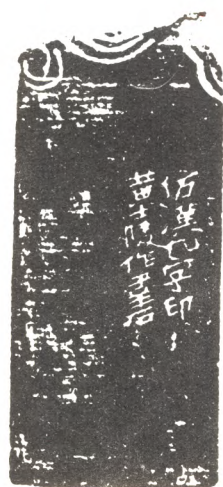 仿漢九字印
黄士陵作